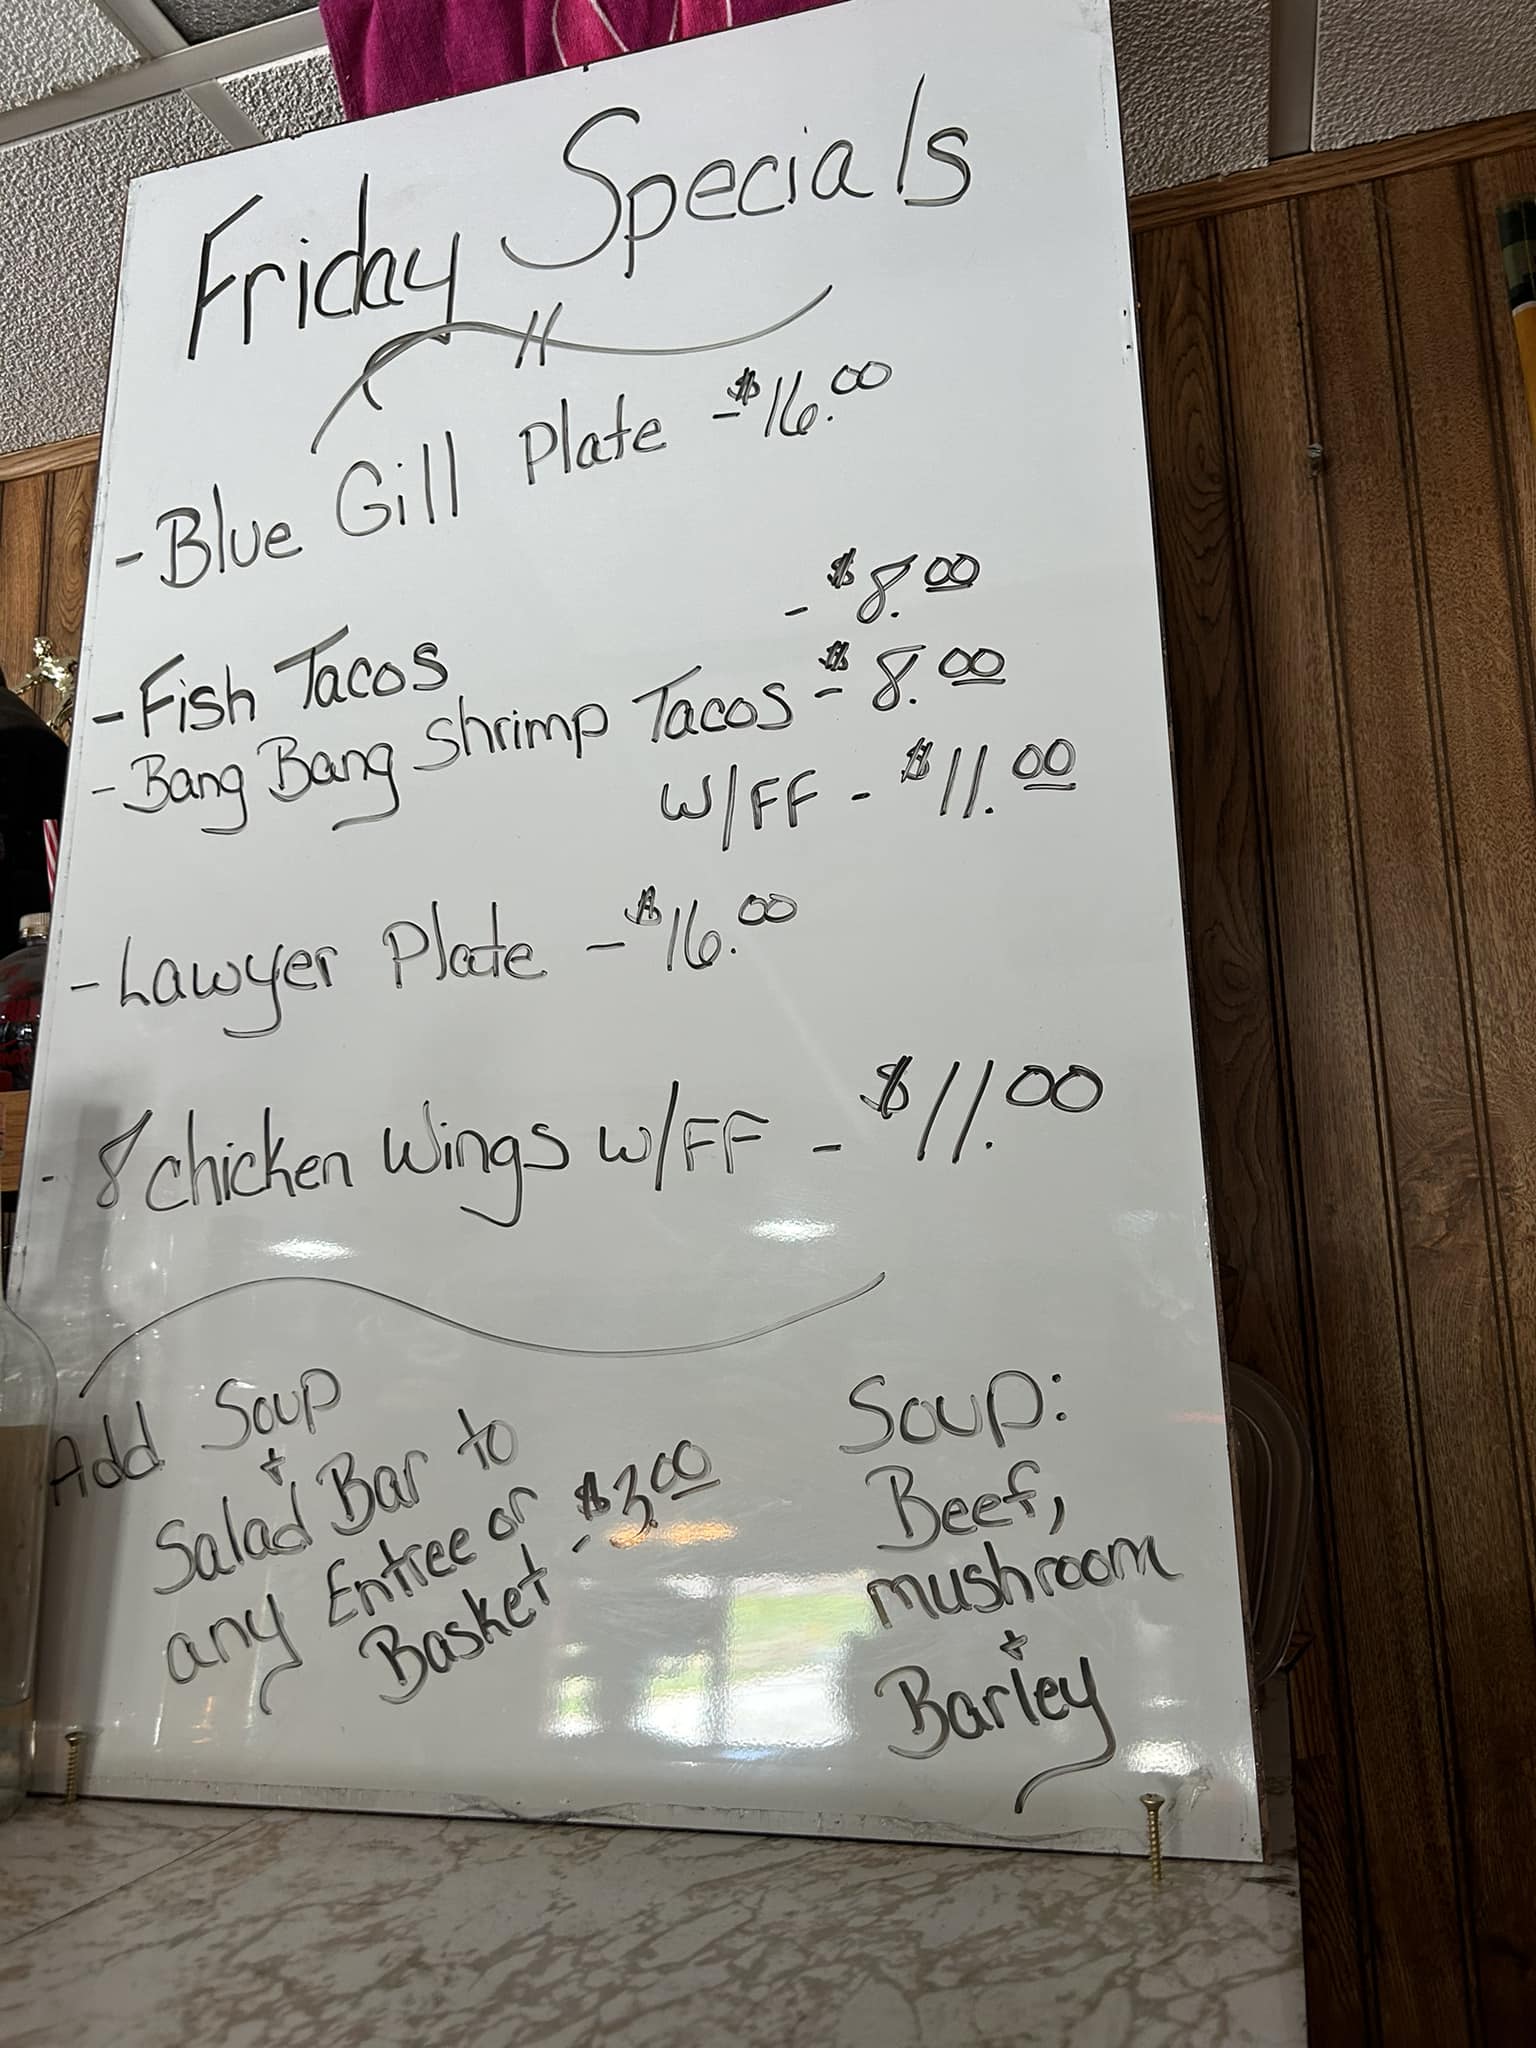 Friday Specials
- Blue Gill Plate - $16.00
- Fish Tacos - $8.00
- Bang Bang Shrimp Tacos - $8.00
W/FF - $11.00
- Lawyer Plate - $16.00
- 8 chicken wings w/FF - $11.00
Add Soup
+
Salad Bar to
any Entree or
Basket - $3.00
Soup:
Beef,
mushroom
+
Barley